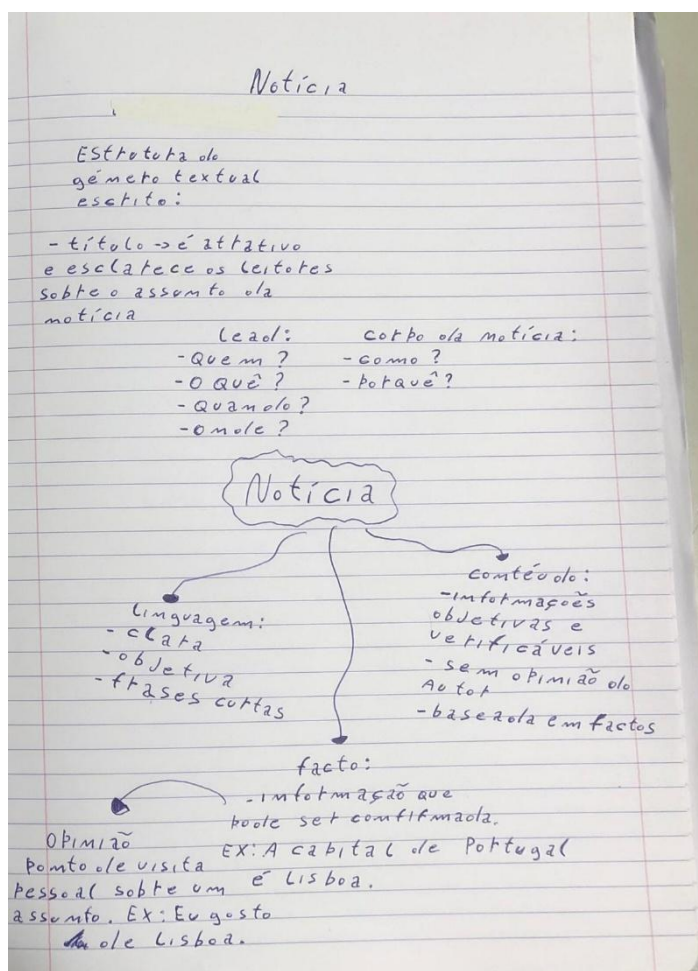 Notícia
Estrutura do
género textual
escrito:
- título -> é atrativo
e esclarece os leitores
sobre o assunto da
notícia
lead:
- Quem?
- O quê?
- Quando?
- Onde?
corpo da notícia:
- como?
- porquê?
Notícia
linguagem:
- clara
- objetiva
- frases curtas
contéudo:
- informações
objetivas e
verificáveis
- sem opinião do
Autor
- baseada em factos
facto:
- informação que
pode ser confirmada.
EX: A capital de Portugal
é Lisboa.
Opinião
Ponto de visita
Pessoal sobre um
assunto. EX: Eu gosto
de Lisboa.